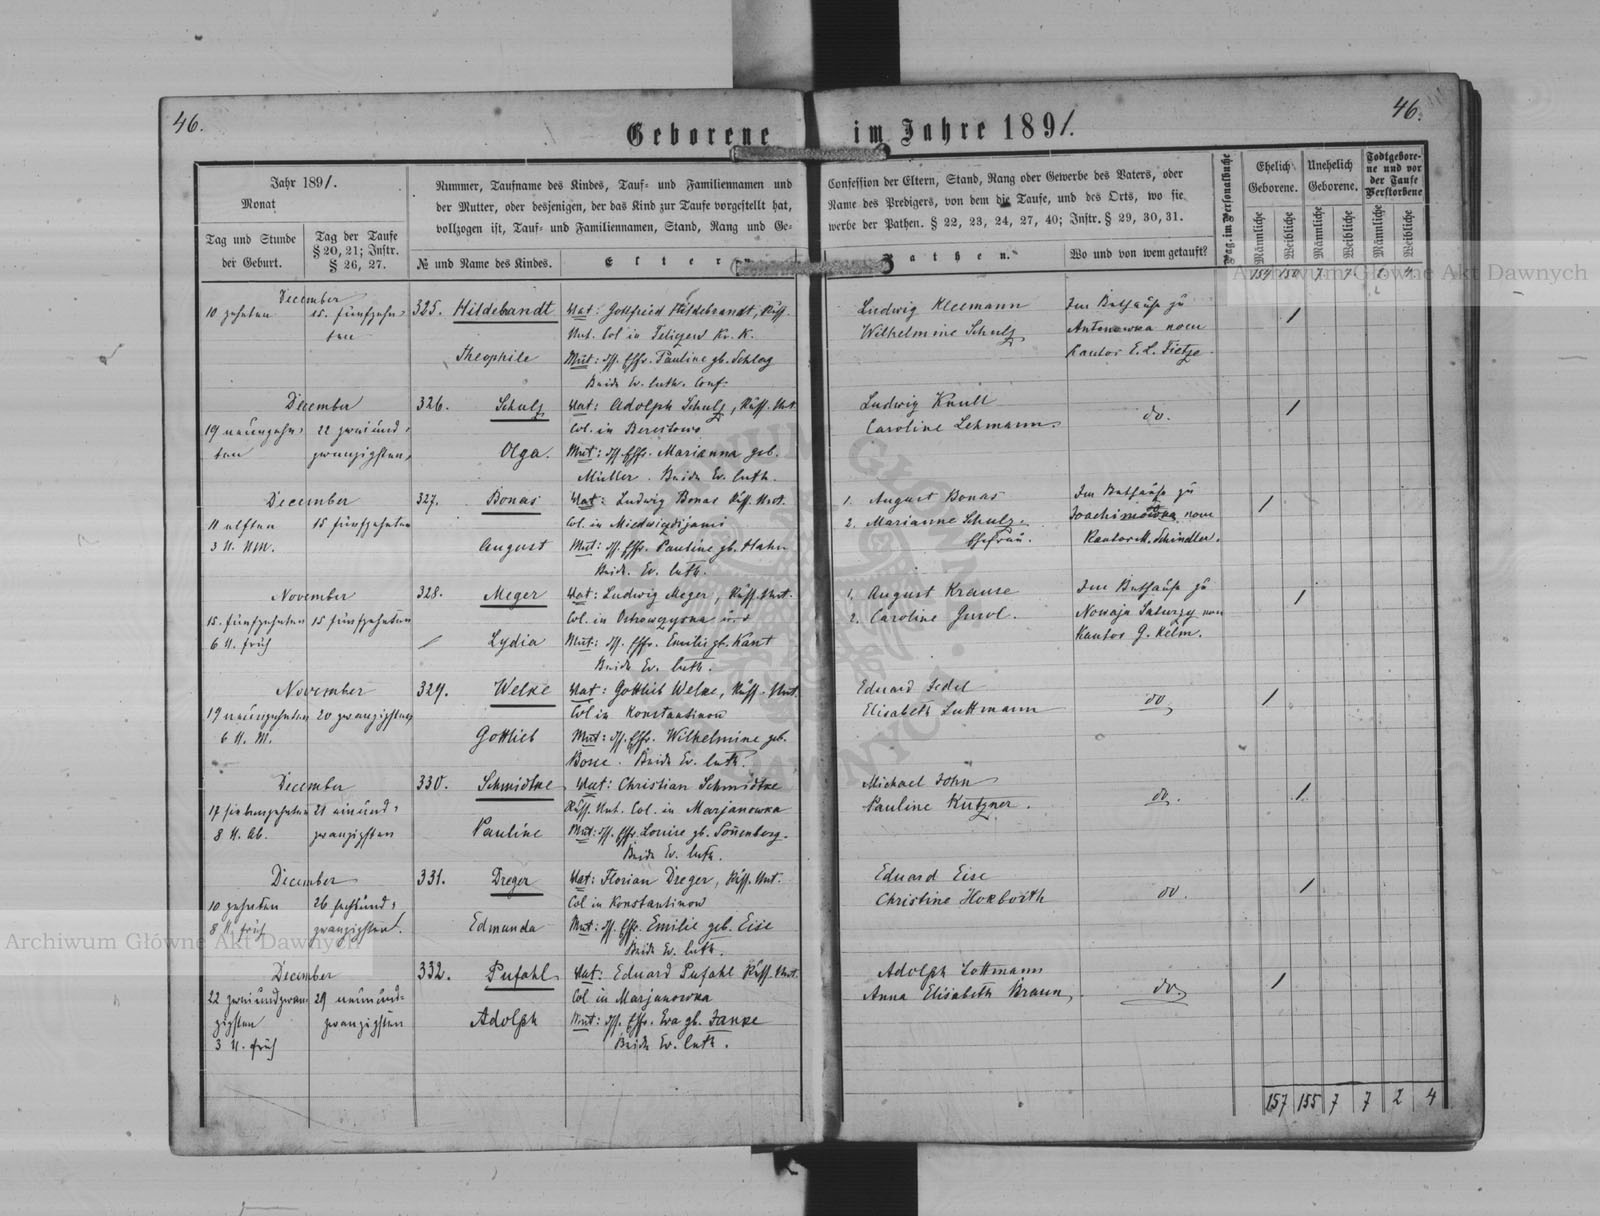 46.
46.
Geborene im Jahre 1891.
Jahr 1891.
Monat
Tag und Stunde
der Geburt.
Tag der Taufe
§ 20, 21; Instr.
§ 26, 27.
Nummer, Taufname des Kindes, Tauf- und Familiennamen und
der Mutter, oder desjenigen, der das Kind zur Taufe vorgestellt hat,
vollzogen ist, Tauf- und Familiennamen, Stand, Rang und Ge-
№ und Name des Kindes.
Eltern
Confession der Eltern, Stand, Rang oder Gewerbe des Vaters, oder
Name des Predigers, von dem die Taufe, und des Orts, wo sie
werbe der Pathen. § 22, 23, 24, 27, 40; Instr. § 29, 30, 31.
Pathen.
Wo und von wem getauft?
Pag. im Personalbuche
Ehelich
Geborene.
Unehelich
Geborene.
Todtgebore-
ne und vor
der Taufe
Verstorbene
Männliche
Weibliche
Männliche
Weibliche
Männliche
Weibliche
154 150 7 7 2 4
December
10 zehnten
15. fünfzehn-
ten
325. Hildebrandt
Theophile
Vat: Gottfried Hildebrandt, Russ.
Unt. Col in Teligew Kr. K.
Mut: dss. Ehfr. Pauline gb. Schlag
Beide Ev. luth. Conf.
Ludwig Kleemann
Wilhelmine Schulz
Im Bethause zu
Antonowka vom
Kantor E. L. Tietze
/
December
19 neunzehn-
ten
22 zweiund-
zwanzigsten
326. Schulz
Olga.
Vat: Adolph Schulz, Russ. Unt.
Col. in Beresitowo
Mut: dss. Ehfr. Marianna geb.
Müller. Beide Ev. luth.
Ludwig Knull
Caroline Lehmann
do.
/
December
11 elften
3 U. NM.
15 fünfzehnten
327. Bonas
August
Vat: Ludwig Bonas Russ. Unt.
Col. in Miedwieдijami
Mut: dss. Ehfr. Pauline gb. Hahn
Beide. Ev. luth.
1. August Bonas
2. Marianne Schulz
Ehefrau.
Im Bethause zu
Joachimowka vom
Kantor M. Schindler.
/
November
15. fünfzehnten
6 U. früh
15 fünfzehnten
328. Meger
Lydia
Vat: Ludwig Meger, Russ. Unt.
Col. in Ostrowzysna
Mut: dss. Ehfr. Emilie gb. Kant
Beide Ev. luth.
1. August Krause
2. Caroline
Im Bethause zu
Nowaja vom
Kantor G. Kelm.
/
November
19 neunzehnten
6 U. M.
20 zwanzigsten
329. Welke
Gottlieb
Vat: Gottlieb Welke, Russ. Unt.
Col in Konstantinow
Mut: dss. Ehfr. Wilhelmine geb.
Bosse. Beide Ev. luth.
Eduard Jedel
Elisabeth Luttmann
do
/
December
17 siebenzehnten
8 U. Ab.
21 einund-
zwanzigsten
330. Schmidtke
Pauline
Vat: Christian Schmidtke
Russ. Unt. Col. in Marjanowka
Mut: dss. Ehfr. Louise gb. Sonnenberg.
Beide Ev. luth.
Michael John
Pauline Kutzner.
do.
/
December
10 zehnten
8 U. früh
26 sechsund-
zwanzigsten.
331. Dreger
Edmunda
Vat: Florian Dreger, Russ. Unt.
Col in Konstantinow
Mut: dss. Ehfr. Emilie geb. Eise
Beide Ev. luth.
Eduard Eise
Christine Horborth
do.
/
December
22 zweiundzwan-
zigsten
3 U. früh
29 neunund-
zwanzigsten
332. Pufahl
Adolph
Vat: Eduard Pufahl Russ. Unt.
Col in Marjanowka
Mut: dss. Ehfr. Eva gb. Janke
Beide Ev. luth.
Adolph Lottmann
Anna Elisabeth Braun
do
/
157 155 7 7 2 4
Archiwum Główne Akt Dawnych
Archiwum Główne Akt Dawnych